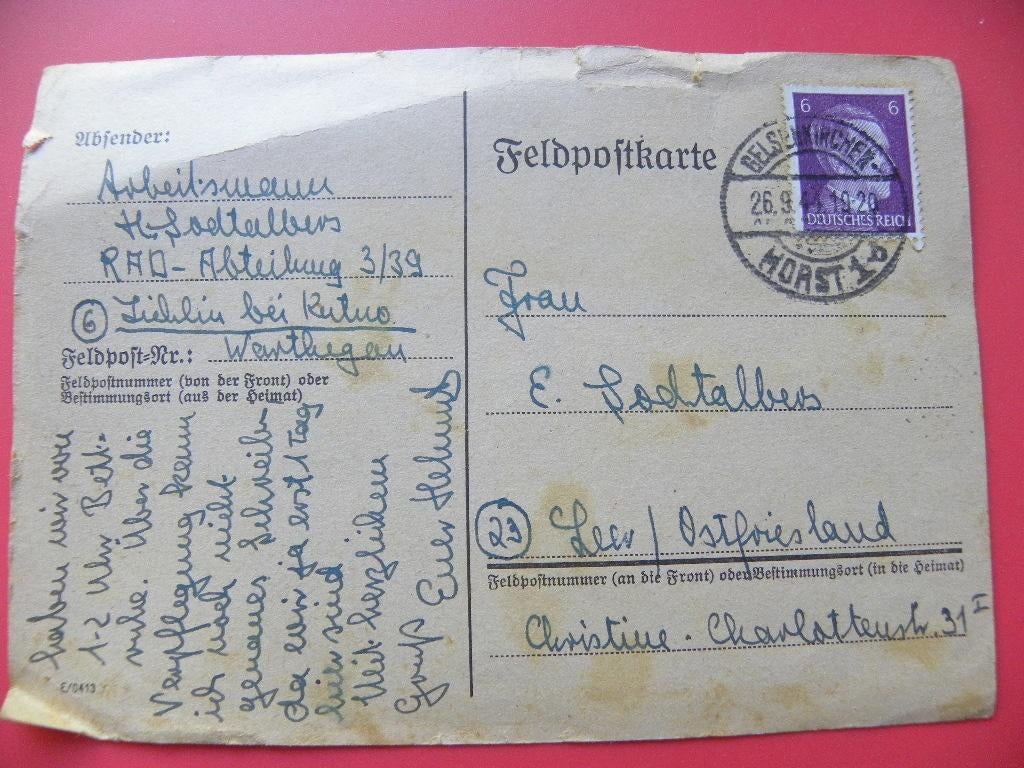 Absender:
Arbeitsmann
H. Sodtalbers
RAD-Abteilung 3/39
6 bei Kutno
Warthegau
Feldpost-Nr.:
Feldpostnummer (von der Front) oder
Bestimmungsort (aus der Heimat)
haben wir von
1-2 Uhr Bett-
ruhe. Über die
Verpflegung kann
ich noch nicht
genaues schreib-
da wir ja erst 1 Tag
hier sind
Mit herzlichem
Gruß Euer Helmut
E/0413
Feldpostkarte
6 6
DEUTSCHES REICH
GELSENKIRCHEN-
26.9.4 19-20
HORST 1 b
Frau
E. Sodtalbers
23 Leer / Ostfriesland
Feldpostnummer (an die Front) oder Bestimmungsort (in die Heimat)
Christine-Charlottenstr. 31 I